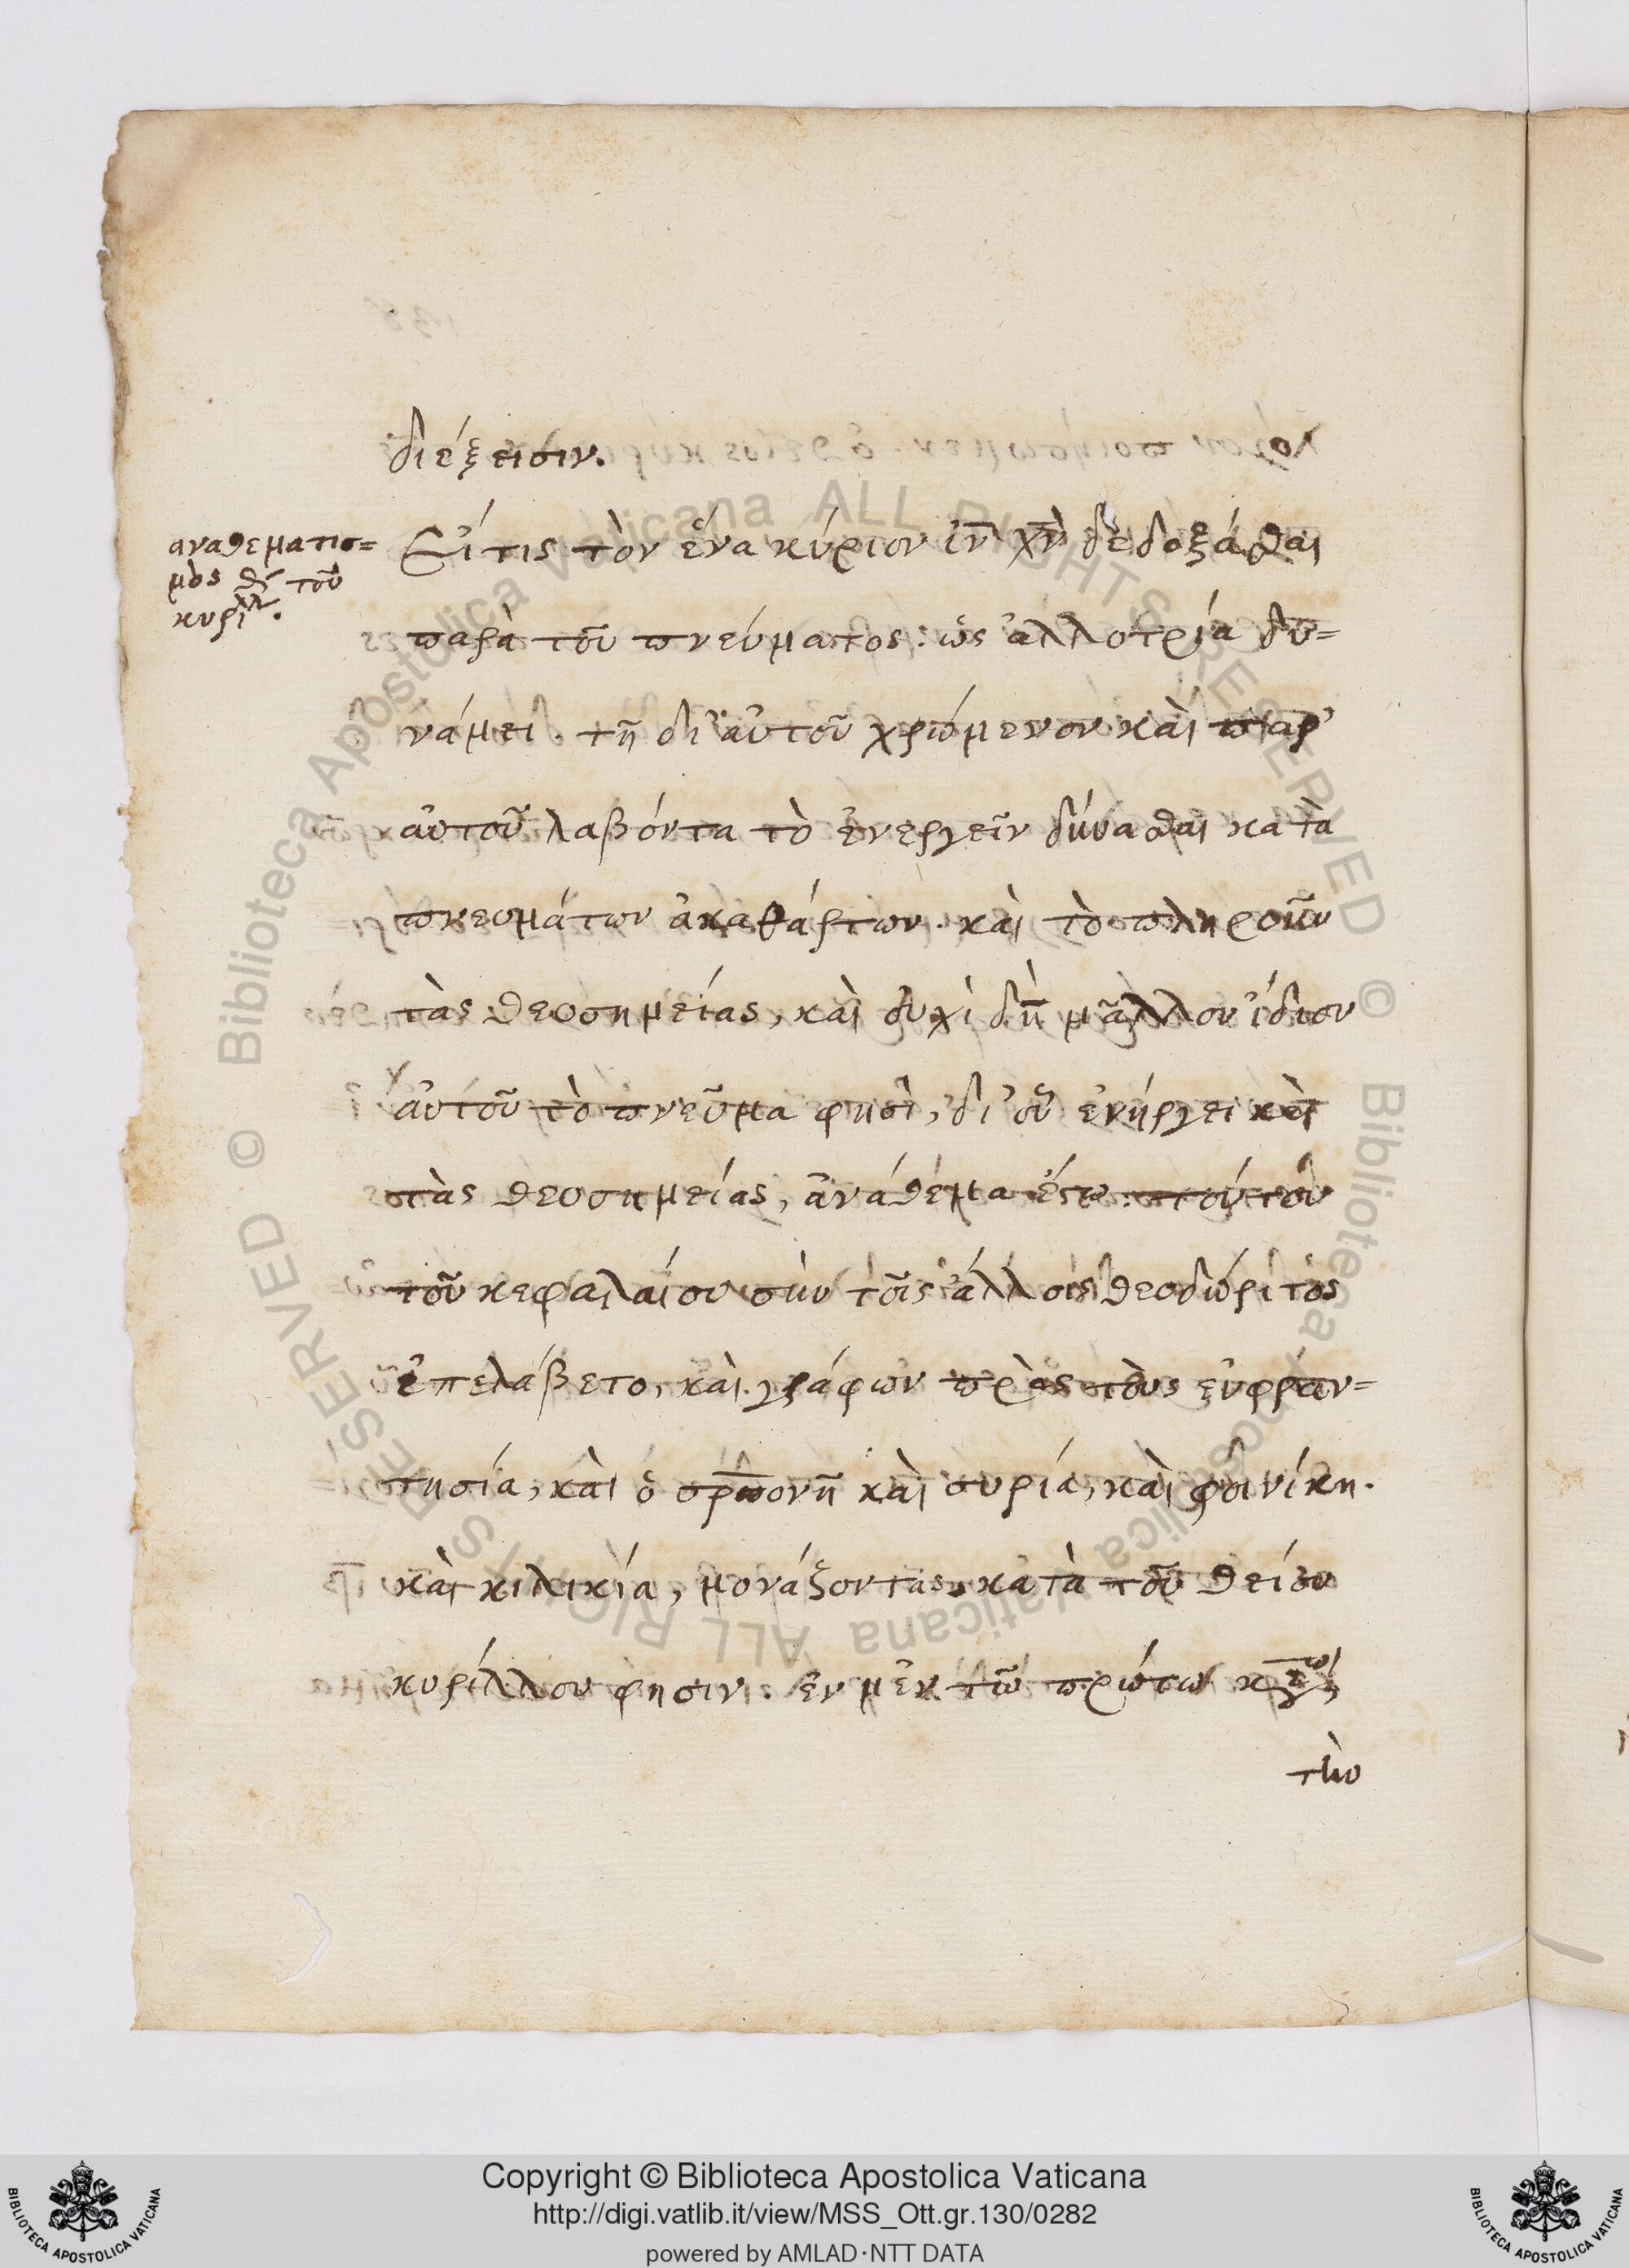 διέξεισιν.
αναθεματισ=
μὸς θ´ τοῦ
κυρίλλ.
Εἴ τις τὸν ἕνα κύριον ἰν χν δεδοξάσθαι
παρὰ τοῦ πνεύματος· ὡς ἀλλοτρία δυ=
νάμει. τῆ δι' αὐτοῦ χρώμενον καὶ παρ'
αὐτοῦ λαβόντα τὸ ἐνεργεῖν δύνασθαι κατὰ
πνευμάτων ἀκαθάρτων. καὶ τὸ πληροῦν
τὰς θεοσημείας, καὶ οὐχὶ δὴ μᾶλλον ἴδιον
αὐτοῦ τὸ πνεῦμα φησὶ, δι' οὗ ἐνήργει καὶ
τὰς θεοσημείας, ἀνάθεμα ἔστω. τούτου
τοῦ κεφαλαίου σὺν τοῖς ἄλλοις θεοδώριτος
ἐπελάβετο, καὶ γράφων πρὸς τοὺς εὐφραν=
τησία, καὶ ὁ σροπονῆ καὶ συρία, καὶ φοινίκη.
καὶ κιλικία, μονάζοντας κατὰ τοῦ θείου
κυρίλλου φησιν. ἐν μὲν τῶ πρώτω
τὴν
Copyright © Biblioteca Apostolica Vaticana
http://digi.vatlib.it/view/MSS_Ott.gr.130/0282
powered by AMLAD·NTT DATA
BIBLIOTECA APOSTOLICA VATICANA
BIBLIOTECA APOSTOLICA VATICANA
© Biblioteca Apostolica Vaticana ALL RIGHTS RESERVED
© Biblioteca Apostolica Vaticana ALL RIGHTS RESERVED